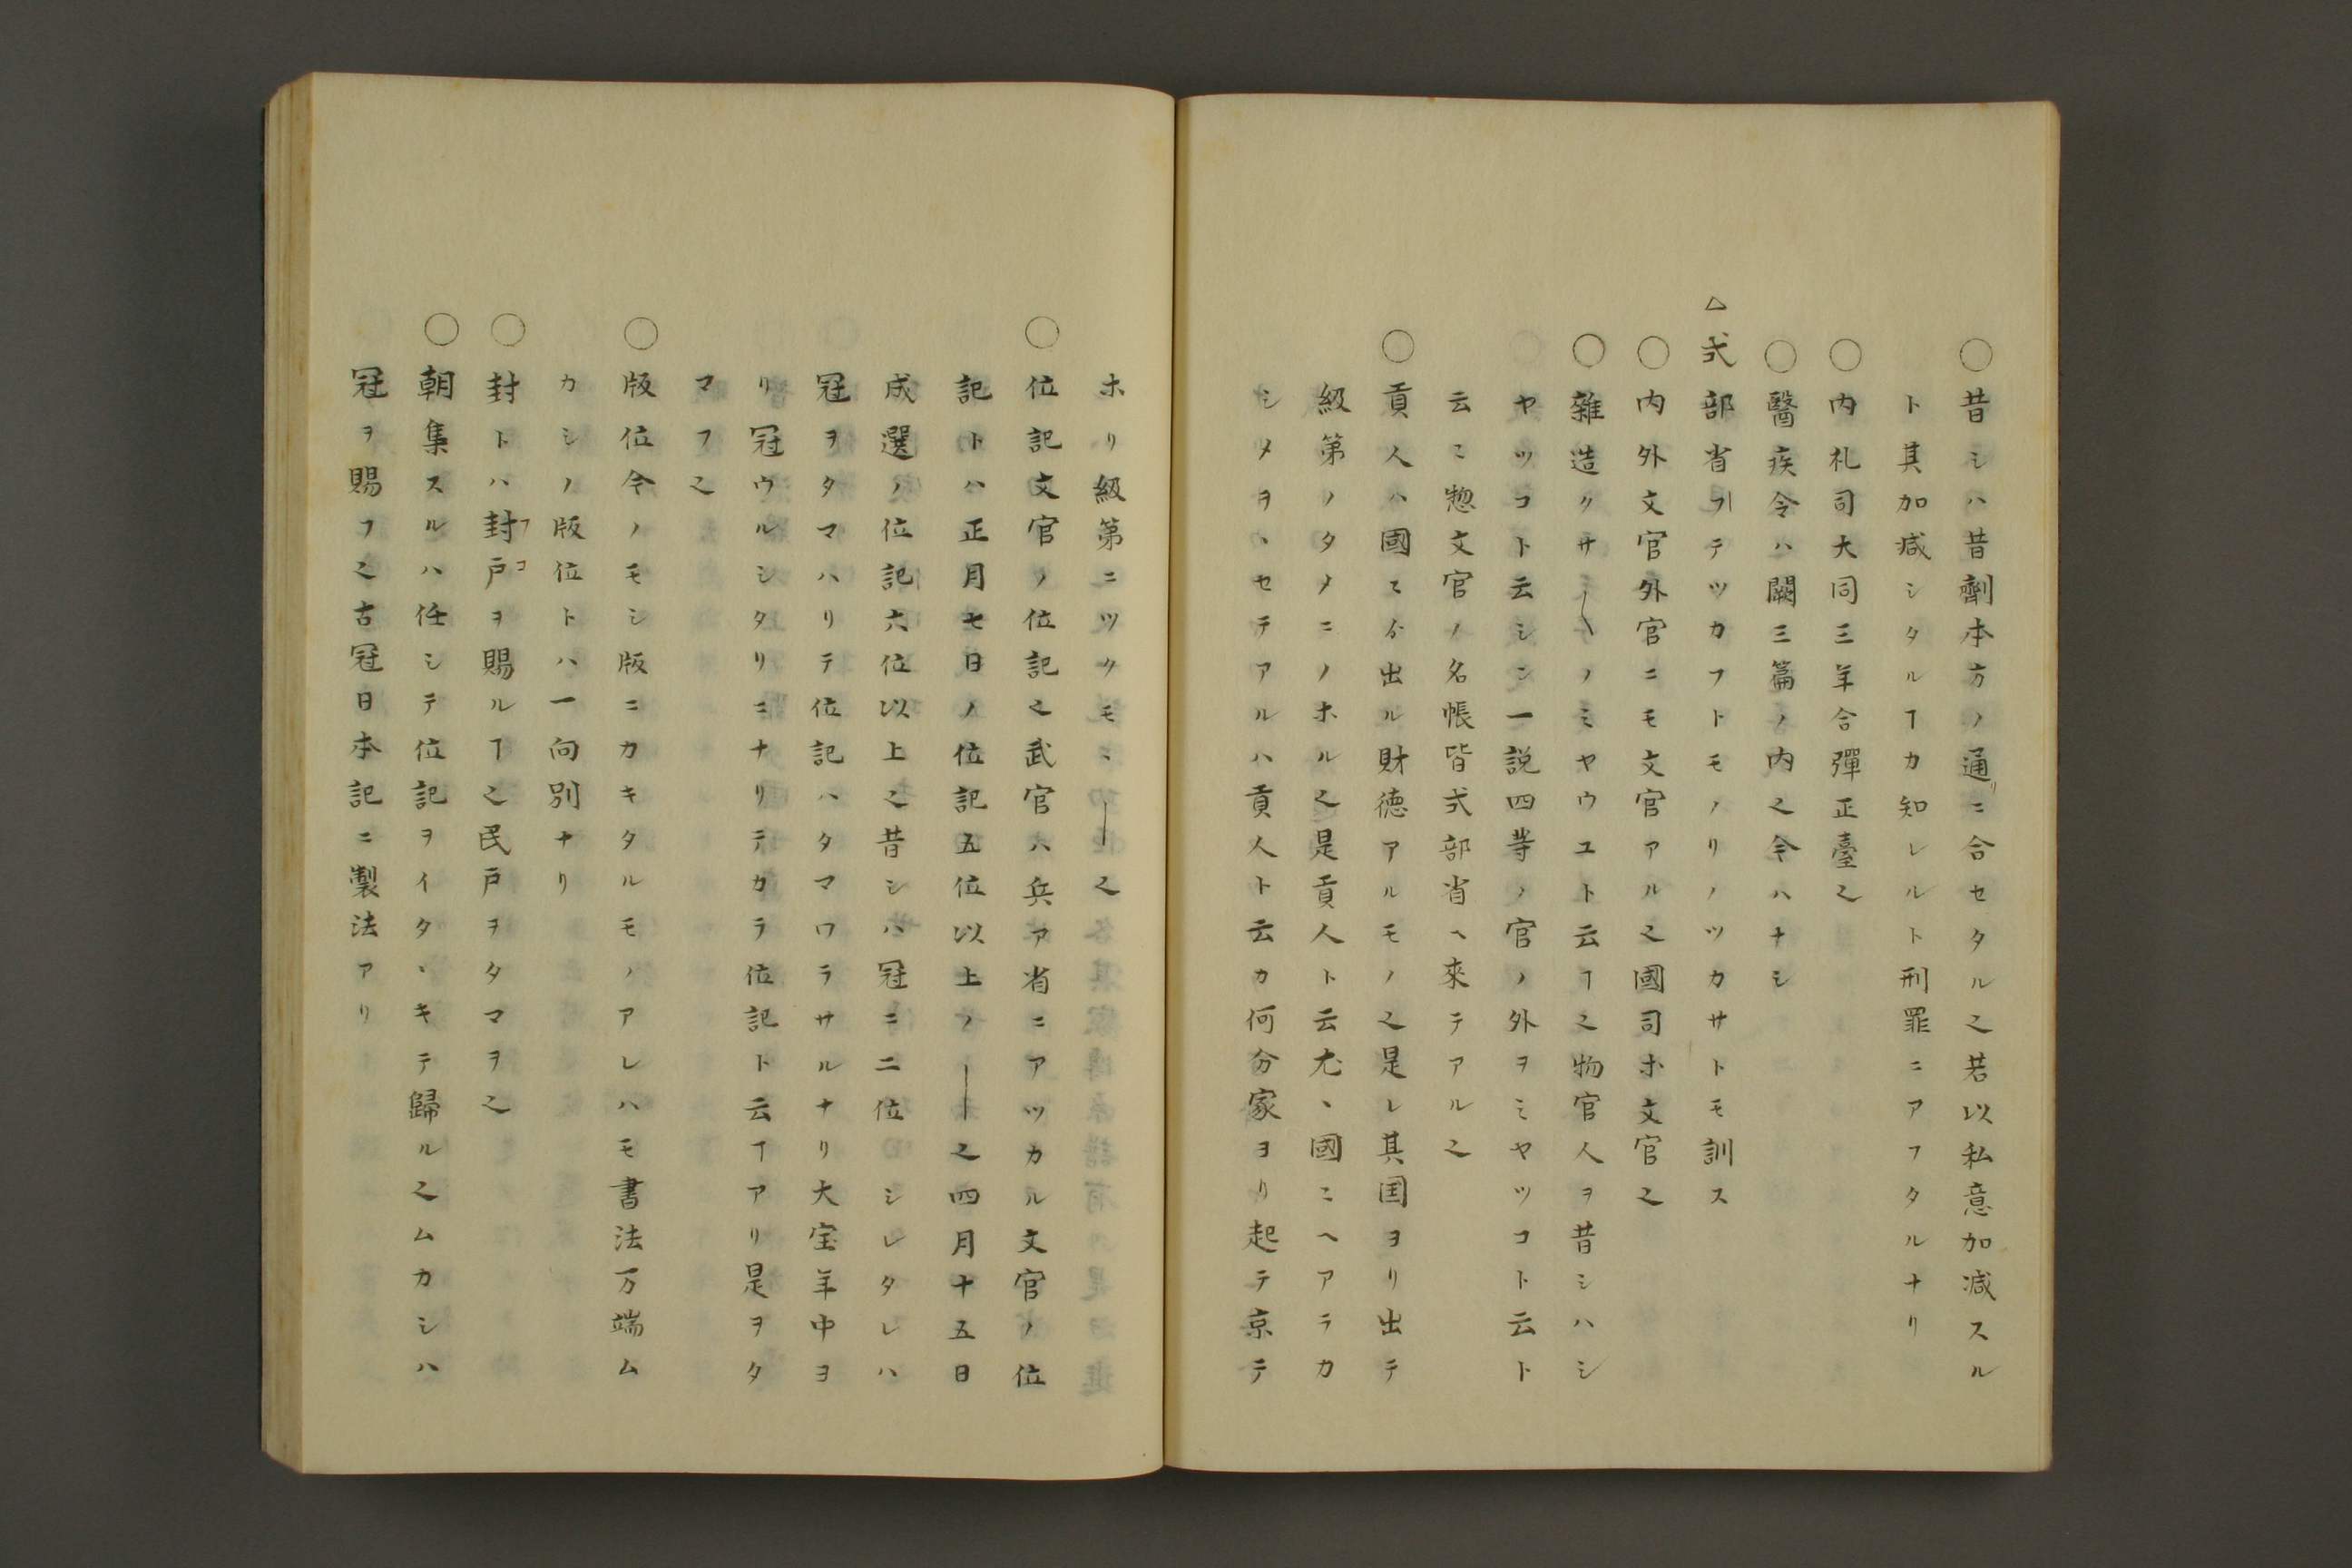 ○昔シハ昔劑本方ノ通リニ合セタル之若以私意加减スル
ト其加减シタルヿカ知レルト刑罪ニアフタルナリ
○内礼司大同三年合彈正臺之
○醫疾令ハ闕三篇ノ内之令ハナシ
△式部省ヲテツカフトモノリノツカサトモ訓ス
○内外文官外官ニモ文官アル之國司ホ文官之
○雜造クサ〱ノミヤウユト云ヿ之物官人ヲ昔シハシ
ヤツコト云シン一説四等ノ官ノ外ヲミヤツコト云ト
云ミ惣文官ノ名帳皆式部省ヘ來テアル之
○貢人ハ國〻ゟ出ル財徳アルモノ之是レ其国ヨリ出テ
級第ノタメニノホル之是貢人ト云尤、國ニヘアラカ
シメヲヽセテアルハ貢人ト云カ何分家ヨリ起テ京テ
ホリ級第ニツクモミ―之
○位記文官ノ位記之武官ハ兵ア省ニアツカル文官ノ位
記トハ正月七日ノ位記五位以上ノ―之四月十五日
成選ノ位記六位以上之昔シハ冠ニ二位シレタレハ
冠ヲタマハリテ位記ハタマワラサルナリ大宝年中ヨ
リ冠ウルシタリニナリテカラ位記ト云ヿアリ是ヲタ
マフ之
○版位令ノモシ版ニカキタルモノアレハモ書法万端ム
カシノ版位トハ一向別ナリ
○封トハ封戸フコヲ賜ルヿ之民戸ヲタマヲ之
○朝集スルハ任シテ位記ヲイタヽキテ歸ル之ムカシハ
冠ヲ賜フ之古冠日本記ニ製法アリ